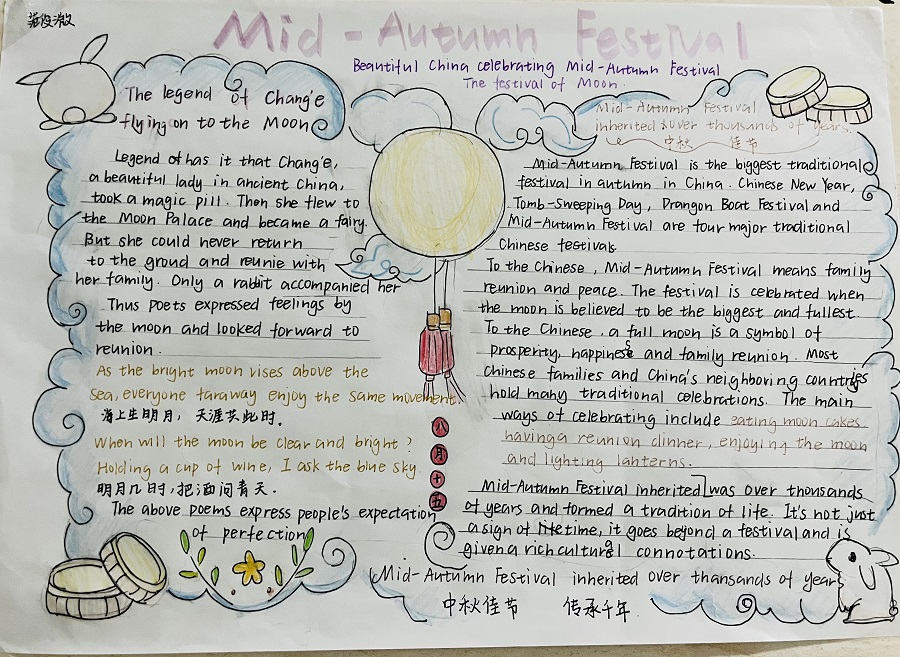 Mid-Autumn Festival
Beautiful China celebrating Mid-Autumn Festival
The festival of Moon.
The legend of Chang'e
flying on to the Moon
Legend of has it that Chang'e,
a beautiful lady in ancient China,
took a magic pill. Then she flew to
the Moon Palace and became a fairy.
But she could never return
to the groud and reunie with
her family. Only a rabbit accompanied her
Thus poets expressed feelings by
the moon and looked forward to
reunion.
As the bright moon rises above the
sea, everyone faraway enjoy the same movement.
海上生明月，天涯共此时.
When will the moon be clear and bright?
Holding a cup of wine, I ask the blue sky
明月几时,把酒问青天.
The above poems express people's expectation
of perfection
八
月
十
五
Mid-Autumn Festival
inherited over thousands of years.
中秋 佳节
Mid-Autumn Festival is the biggest traditional
festival in autumn in China. Chinese New Year,
Tomb-Sweeping Day, Drangon Boat Festival and
Mid-Autumn Festival are four major traditional
Chinese festivals
To the Chinese, Mid-Autumn Festival means family
reunion and peace. The festival is celebrated when
the moon is believed to be the biggest and fullest.
To the Chinese, a full moon is a symbol of
prosperity, happiness and family reunion. Most
Chinese families and China's neighboring countries
hold many traditional celebrations. The main
ways of celebrating include eating moon cakes
having a reunion dinner, enjoying the moon
and lighting lanterns.
Mid-Autumn Festival inherited was over thousands
of years and formed a tradition of life. It's not just
a sign of lifetime, it goes beyond a festival and is
given a rich cultural connotations.
Mid-Autumn Festival inherited over thansands of year
中秋佳节 传承千年